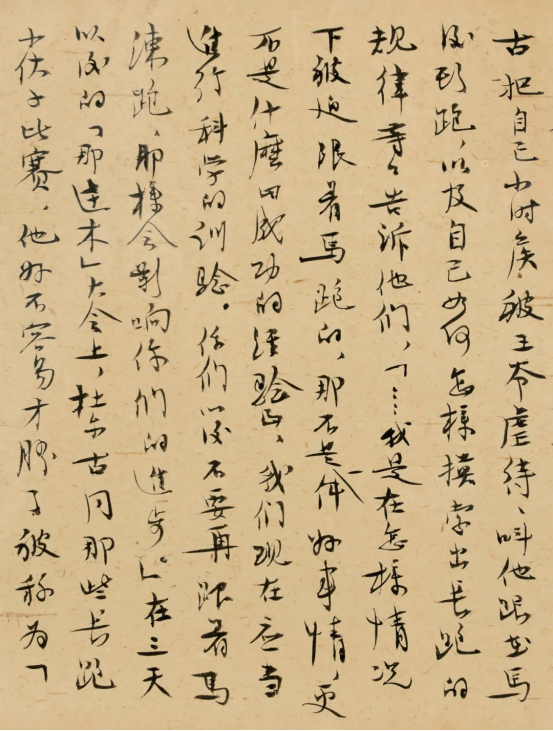 古把自己小时候被王爷虐待、叫他跟在马
后头跑，以及自己如何怎样摸索出长跑的
规律等等告诉他们，「……我是在怎样情况
下被迫跟着马跑的，那不是一件好事情，更
不是什麽田成功的经验，我们现在应当
进行科学的训练。你们以后不要再跟着马
练跑，那样会影响你们的进步」。在三天
以后的「那达木」大会上，杜尔古同那些长跑
小伙子比赛，他好不容易才胜了被称为「